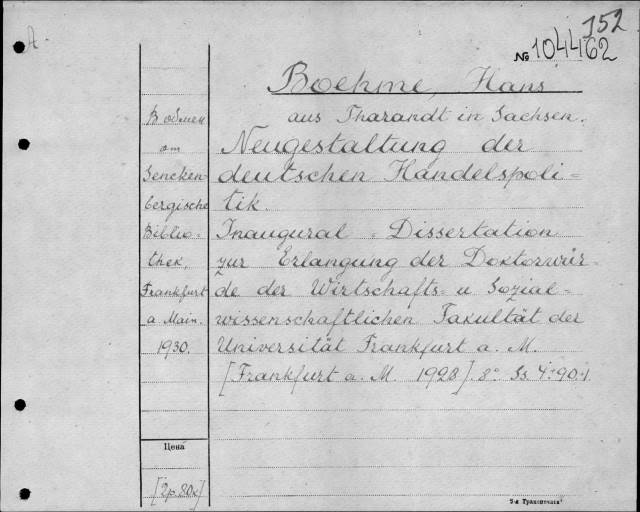 A.
152
№ 104462
Boehme, Hans
aus Tharandt in Sachsen.
Neugestaltung der
deutschen Handelspoli=
tik.
Inaugural - Dissertation
zur Erlangung der Doktorwür-
de der Wirtschafts= u Sozial=
wissenschaftlichen Fakultät der
Universität Frankfurt a. M.
[Frankfurt a. M. 1928]. 8° Ss. 4+90+1
В обмен
от
Sencken-
bergische
Biblio=
thek,
Frankfurt
a. Main.
1930.
Цена
[2р.80к]
5-я Транспечать